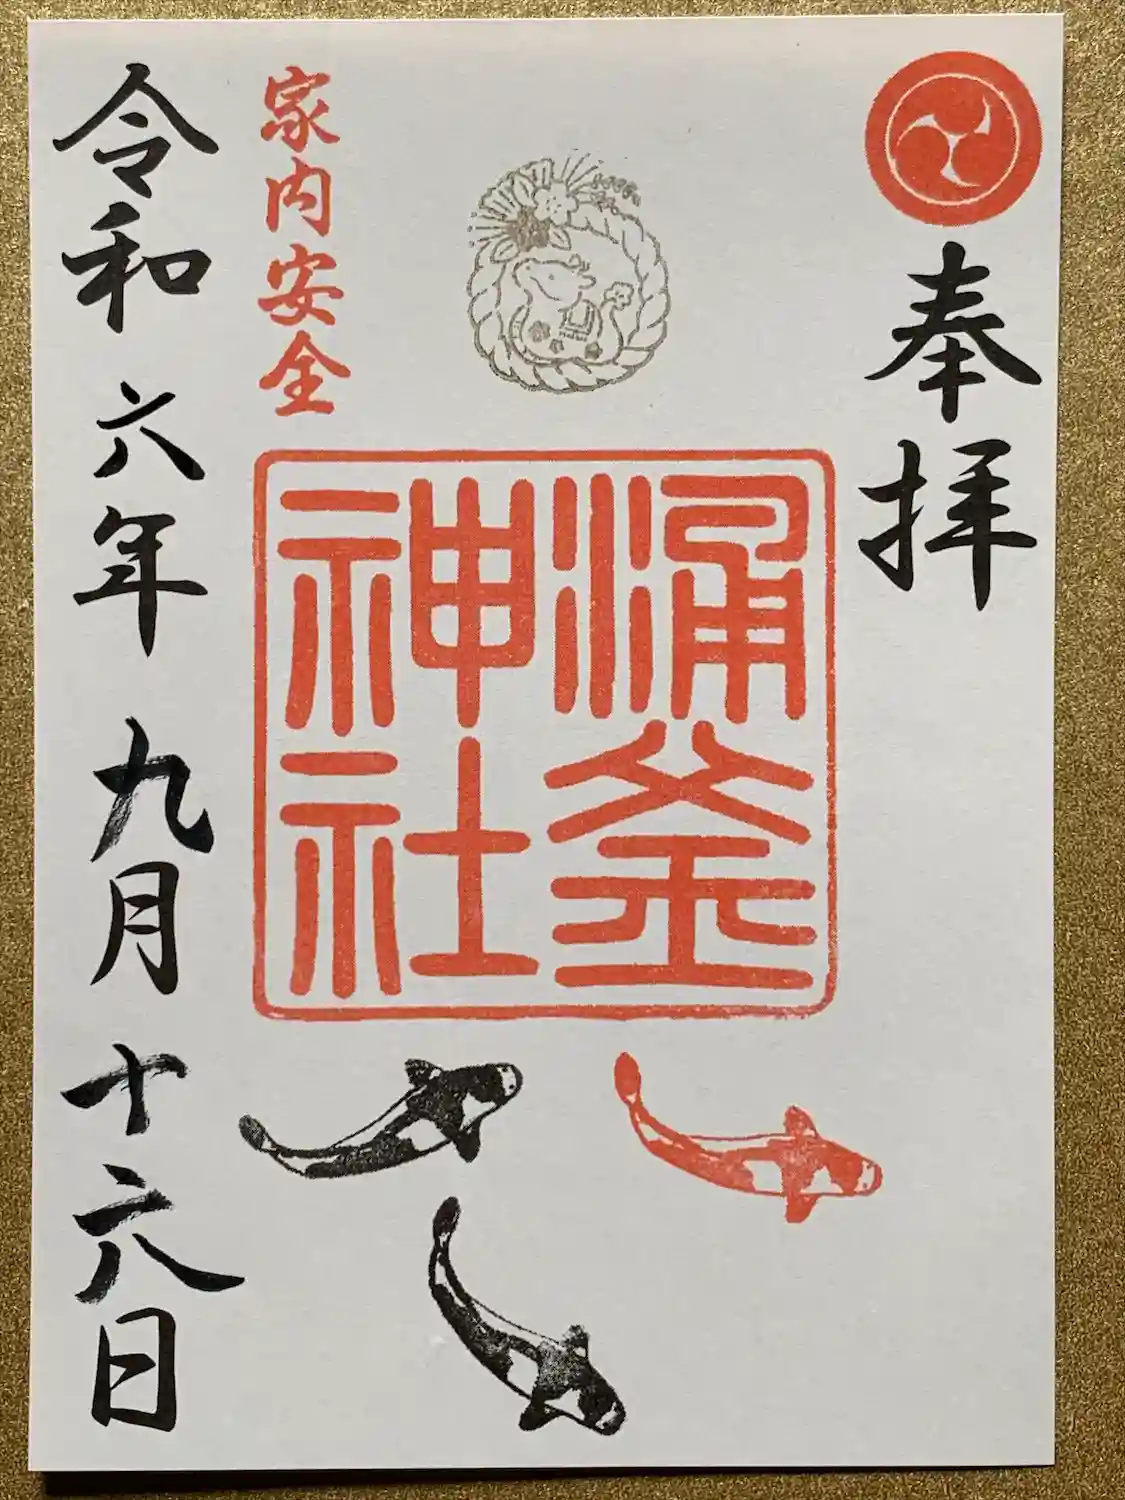 奉拝
涌釜
神社
家内安全
令和六年九月十六日